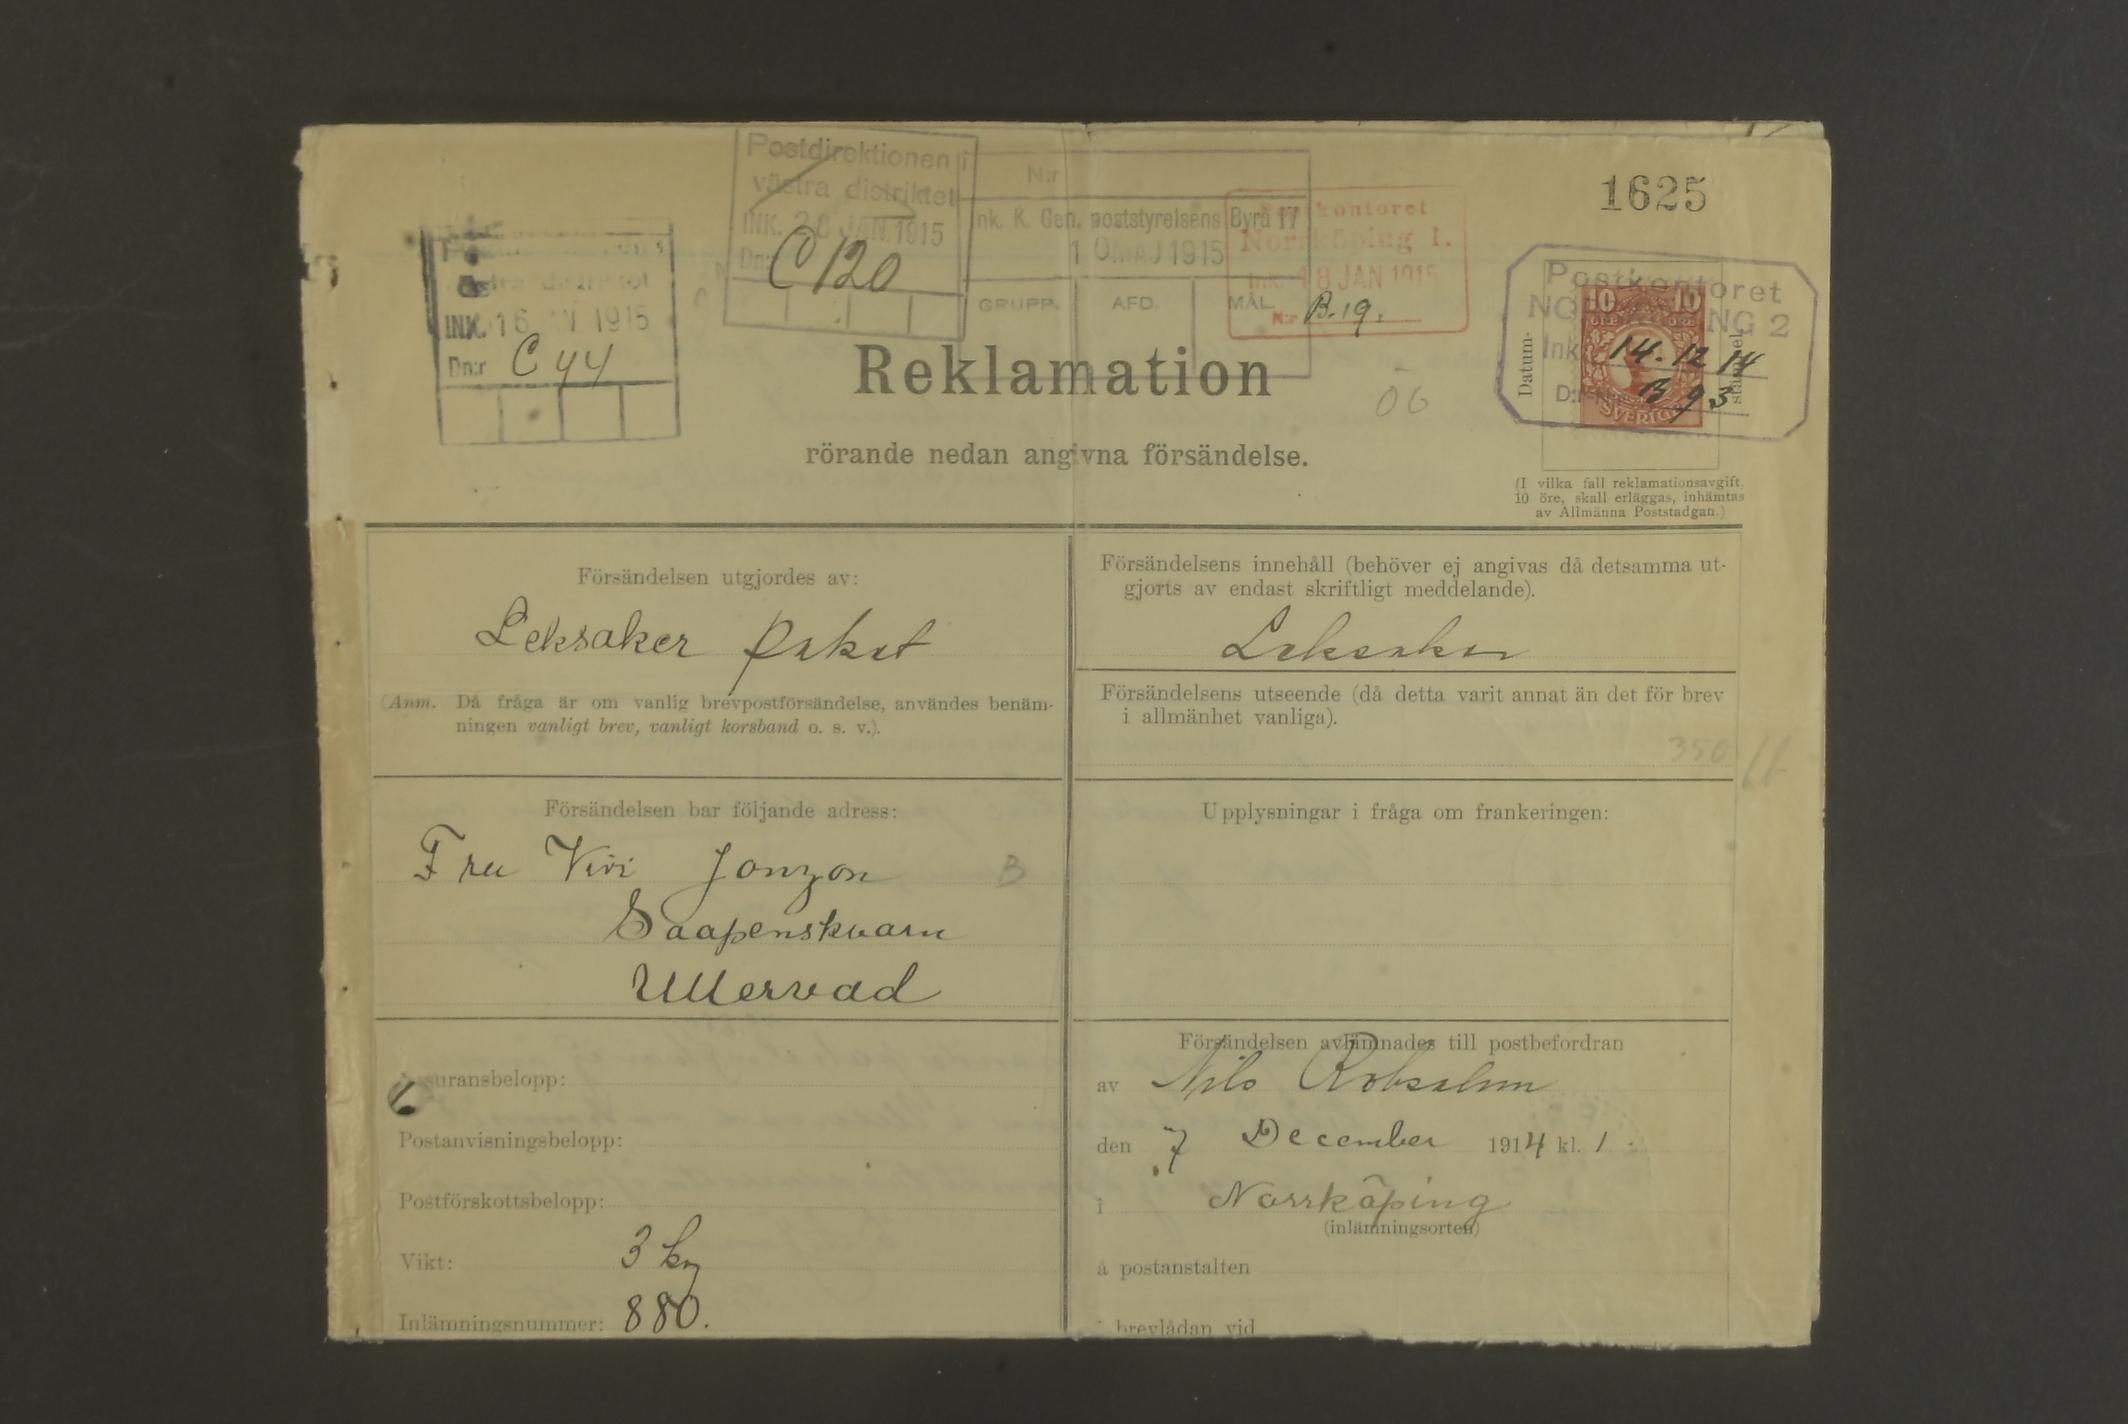 1625
Postdirektionen i
västra distriktet
INK. 26 JAN. 1915
Dn:r C 120
N:r
Ink. K. Gen. poststyrelsens Byrå II
10 MAJ 1915
GRUPP. AFD. MÅL
Postkontoret
Norrköping 1.
Ink. 18 JAN 1915
N:r B. 19.
östra distriktet
INK. 16 1915
Dn:r C 44
Postkontoret
NORRKÖPING 2
Ink. 14.12 14
D:r N:r B 93
Datum-
stämpel
10 10
ÖRE ÖRE
SVERIGE
Reklamation
06
rörande nedan angivna försändelse.
(I vilka fall reklamationsavgift,
10 öre, skall erläggas, inhämtas
av Allmänna Poststadgan.)
Försändelsen utgjordes av:
Leksaker paket
(Anm. Då fråga är om vanlig brevpostförsändelse, användes benäm-
ningen vanligt brev, vanligt korsband o. s. v.).
Försändelsens innehåll (behöver ej angivas då detsamma ut-
gjorts av endast skriftligt meddelande).
Leksaker
Försändelsens utseende (då detta varit annat än det för brev
i allmänhet vanliga).
350
Försändelsen bar följande adress:
Fru Vivi Jonzon
B
Saapenskvarn
Ullervad
Upplysningar i fråga om frankeringen:
Assuransbelopp:
Postanvisningsbelopp:
Postförskottsbelopp:
Vikt: 3 kg
Inlämningsnummer: 880.
Försändelsen avlämnades till postbefordran
av Nils
den 7 December 1914 kl. 1
i Norrköping
(inlämningsorten)
å postanstalten
i brevlådan vid